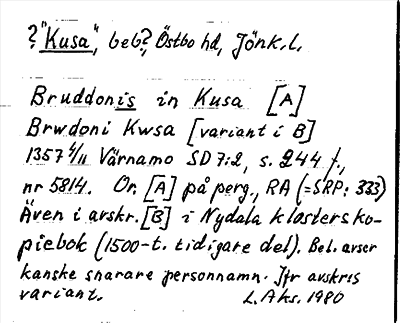 ? "Kusa", beb?, Östbo hd, Jönk.l.
Bruddonis in Kusa [A]
Brwdoni Kwsa [variant i B]
1357 4/11 Värnamo SD 7:2, s. 244 f.,
nr 5814. Or. [A] på perg., RA (=SRP: 333)
Även i avskr. [B] i Nydala klosters ko-
piebok (1500-t. tidigare del). Bel. avser
kanske snarare personnamn. Jfr avskris
variant. L. Aks. 1980